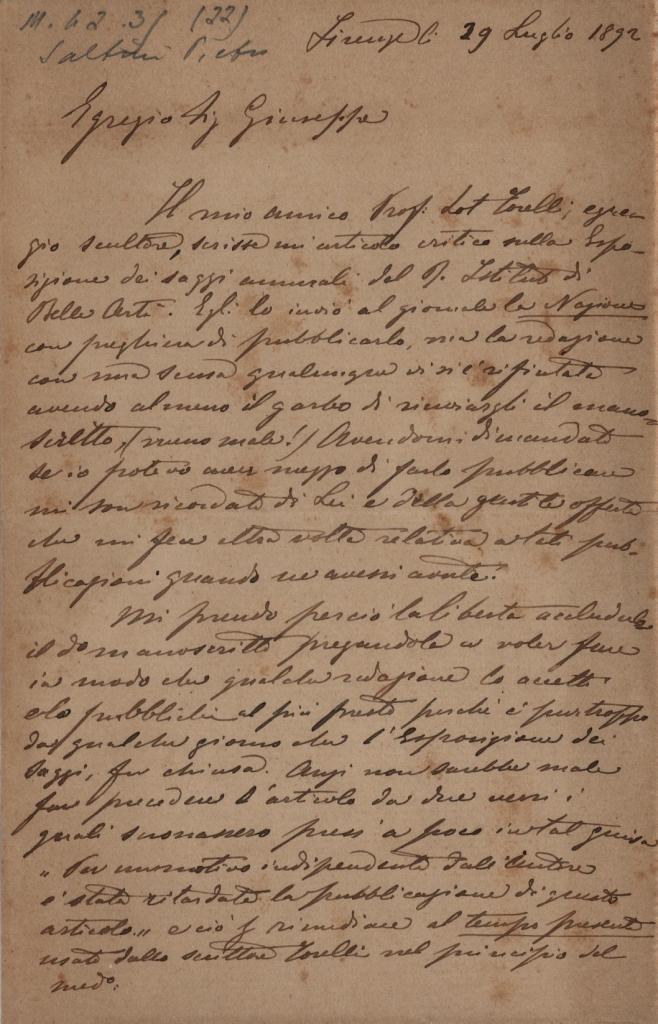 M. h 2 . 31 (22)
Saltini Pietro
Firenze li 29 Luglio 1892
Egregio Sig Giuseppe
Il mio amico Prof. Lot Torelli, egre-
gio scultore, scrisse un articolo critico sulla Espo-
sizione dei saggi annuali del R. Istituto di
Belle Arti. Egli lo inviò al giornale la Nazione
con preghiera di pubblicarlo, ma la redazione
con una scusa qualunque vi si è rifiutata
avendo almeno il garbo di rinviargli il mano=
scritto, (meno male!) Avendomi dimandato
se io potevo aver mezzo di farlo pubblicare
mi son ricordato di Lei e della gentile offerta
che mi fece altra volta relativa a tali pub-
blicazioni quando ne avessi avute.
Mi prendo perciò la libertà accluderle
il do manoscritto pregandola a voler fare
in modo che qualche redazione lo accetti
e lo pubblichi al più presto perché è purtroppo
da qualche giorno che l'Esposizione dei
saggi, fu chiusa. Anzi non sarebbe male
far precedere l'articolo da due versi i
quali suonassero press' a poco in tal guisa
„ Per un motivo indipendente dall'Autore
è stata ritardata la pubblicazione di questo
articolo „ e ciò p rimediare al tempo presente
usato dallo scultore Torelli nel principio del
medo: